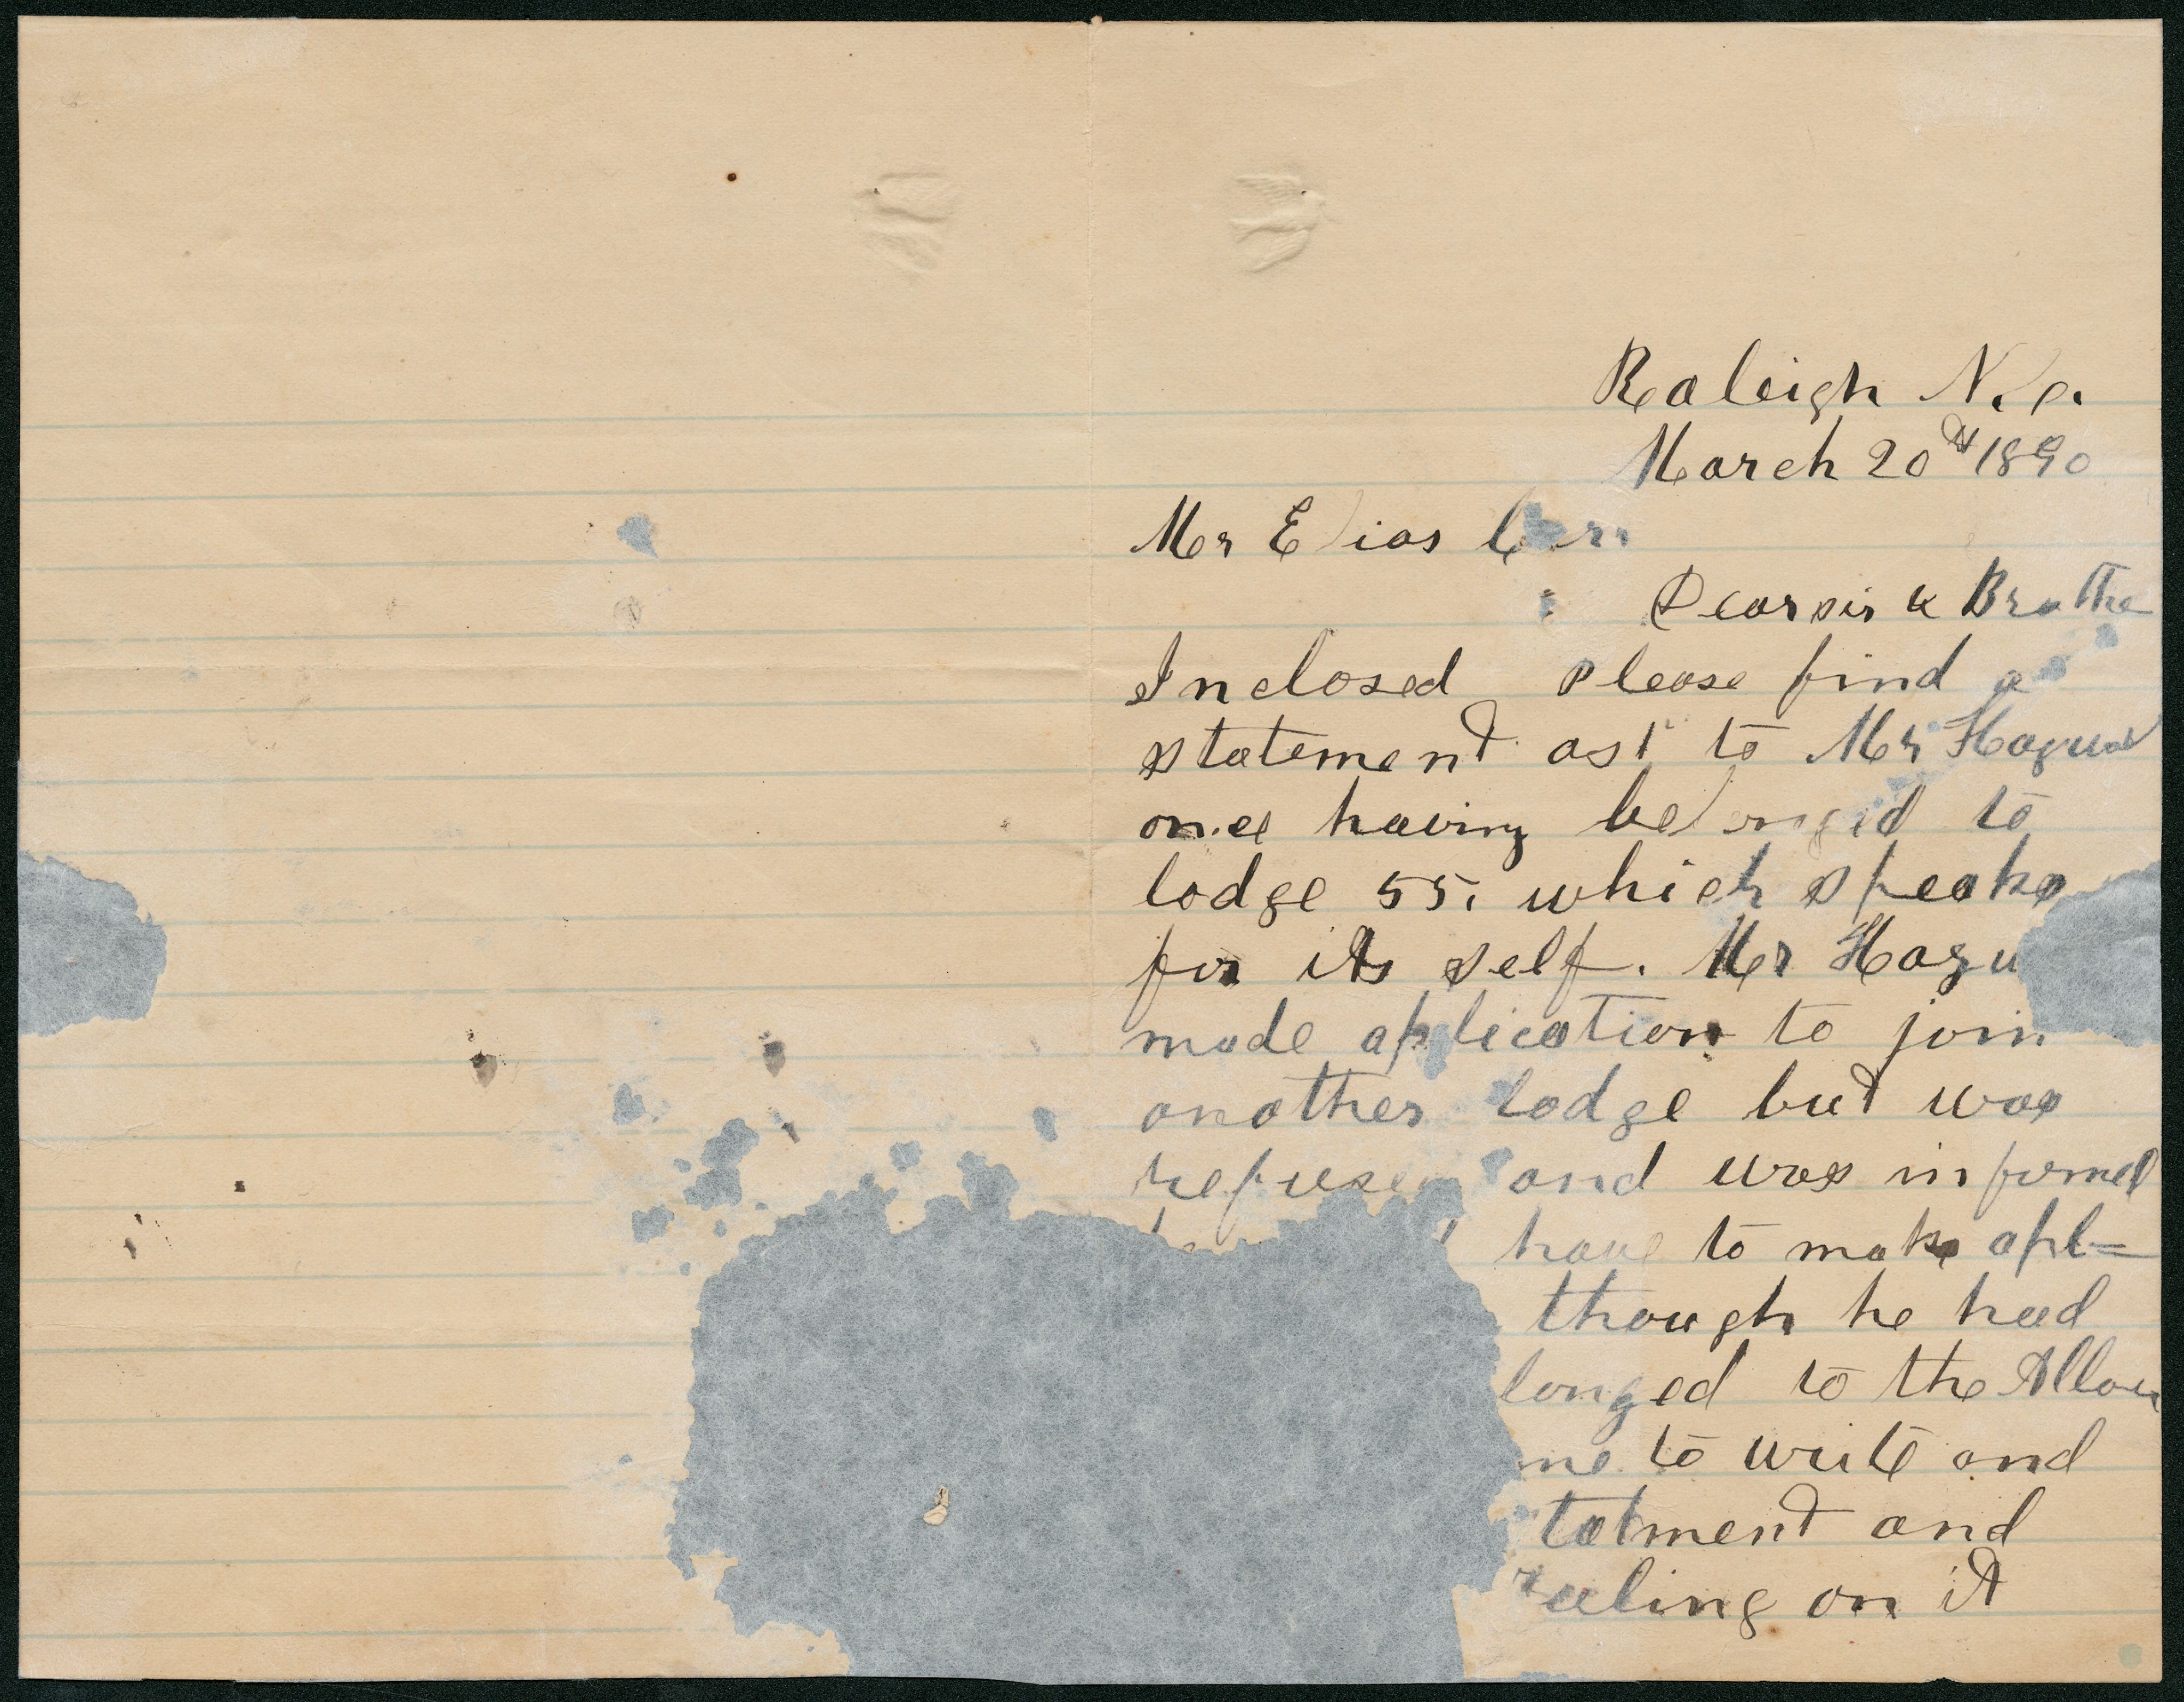 Raleigh N.C.
March 20th 1890
Mr Elias Carr
Dear sir & Brothe
Inclosed Please find a
statement as to Mr
once having belonged to
lodge 55. which speaks
for its self. Mr
made application to join
another lodge but was
refused and was informed
have to make apl=
though he had
longed to the
me to write and
tatment and
ruling on it